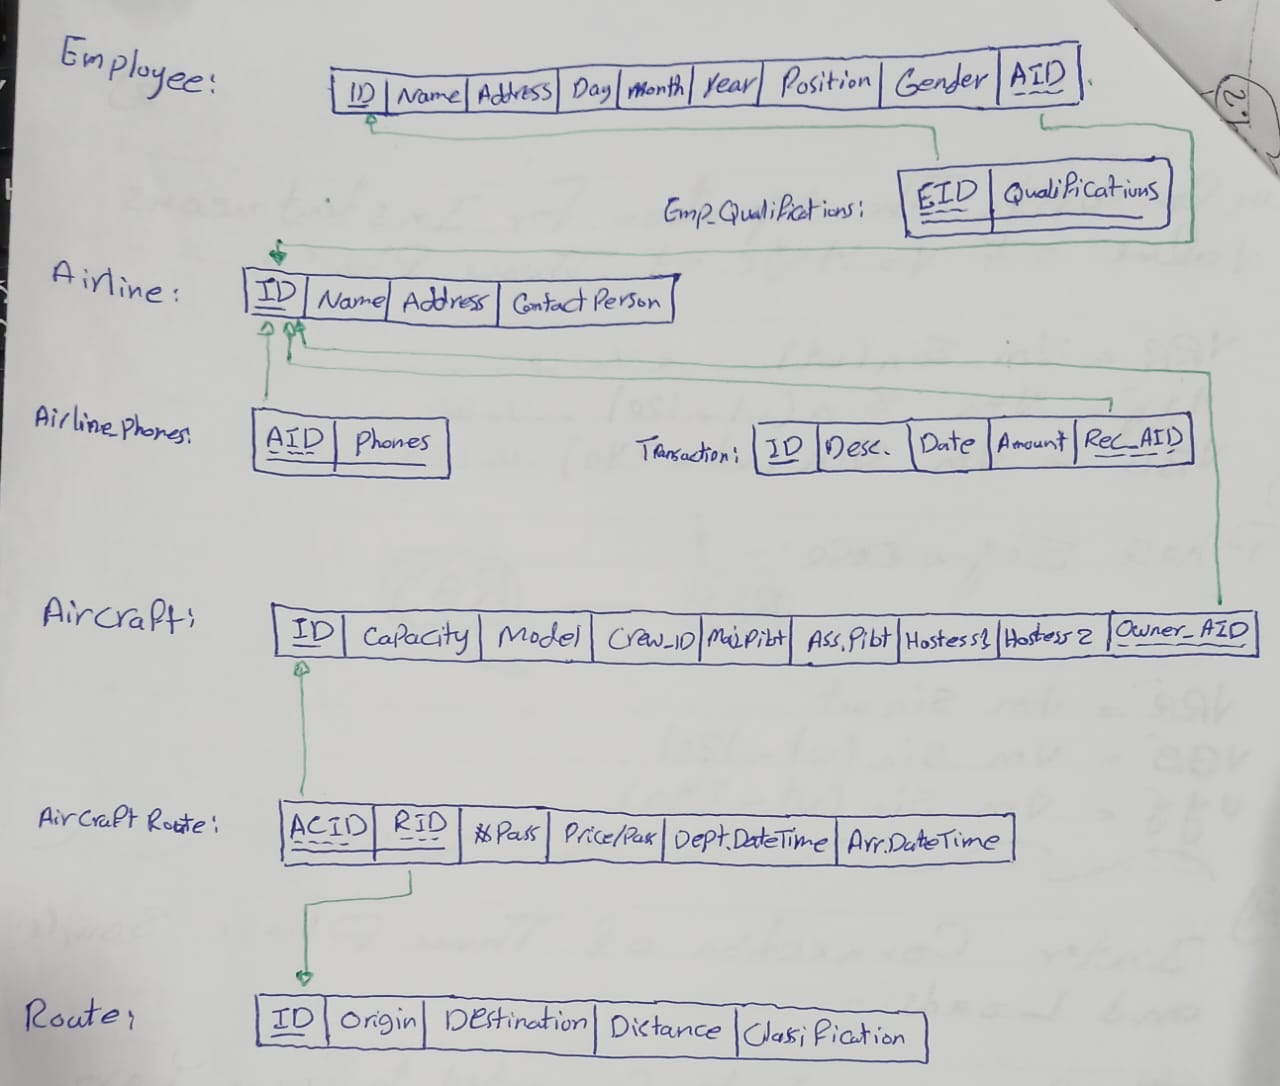 Employee:
ID Name Address Day Month Year Position Gender AID
Emp_Qualifications:
EID Qualifications
Airline:
ID Name Address Contact Person
Airline_Phones:
AID Phones
Transaction:
ID Desc. Date Amount Rec_AID
Aircraft:
ID Capacity Model Crew_ID Ass.Pilot Hostess1 Hostess2 Owner_AID
AirCraft Route:
ACID RID #Pass Price/Pass Dept.DateTime Arr.DateTime
Route:
ID Origin Destination Distance Classification